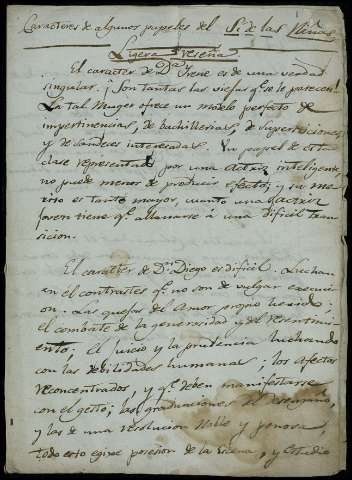 Caracteres de algunos papeles del Sí de las Niñas
Ligera reseña
El caracter de Dª Irene es de una verdad
singular. ¡Son tantas las viejas qᵉ se le parecen!
La tal Muger ofrece un modelo perfecto de
impertinencias, de bachillerias, de supersticiones,
y de sandeces interesadas. Un papel de esta
clase representado por una Actriz inteligente,
no puede menos de producir efecto; y su me-
rito es tanto mayor, cuanto una Actriz
joven tiene qᵉ allanarse á una dificil tran
sicion.
El caracter de Dⁿ Diego es dificil. Luchan
en él contrastes qᵉ no son de vulgar ejecuci
on. Las quejas del Amor propio herido;
el combate de la generosidad y del resentimi-
ento; el juicio y la prudencia luchando
con las debilidades humanas; los afectos
reconcentrados, y qᵉ deben manifestarse
con el gesto; las graduaciones del desengaño,
y las de una resolucion noble y penosa,
todo esto egixe posesion de la Escena, y estudio